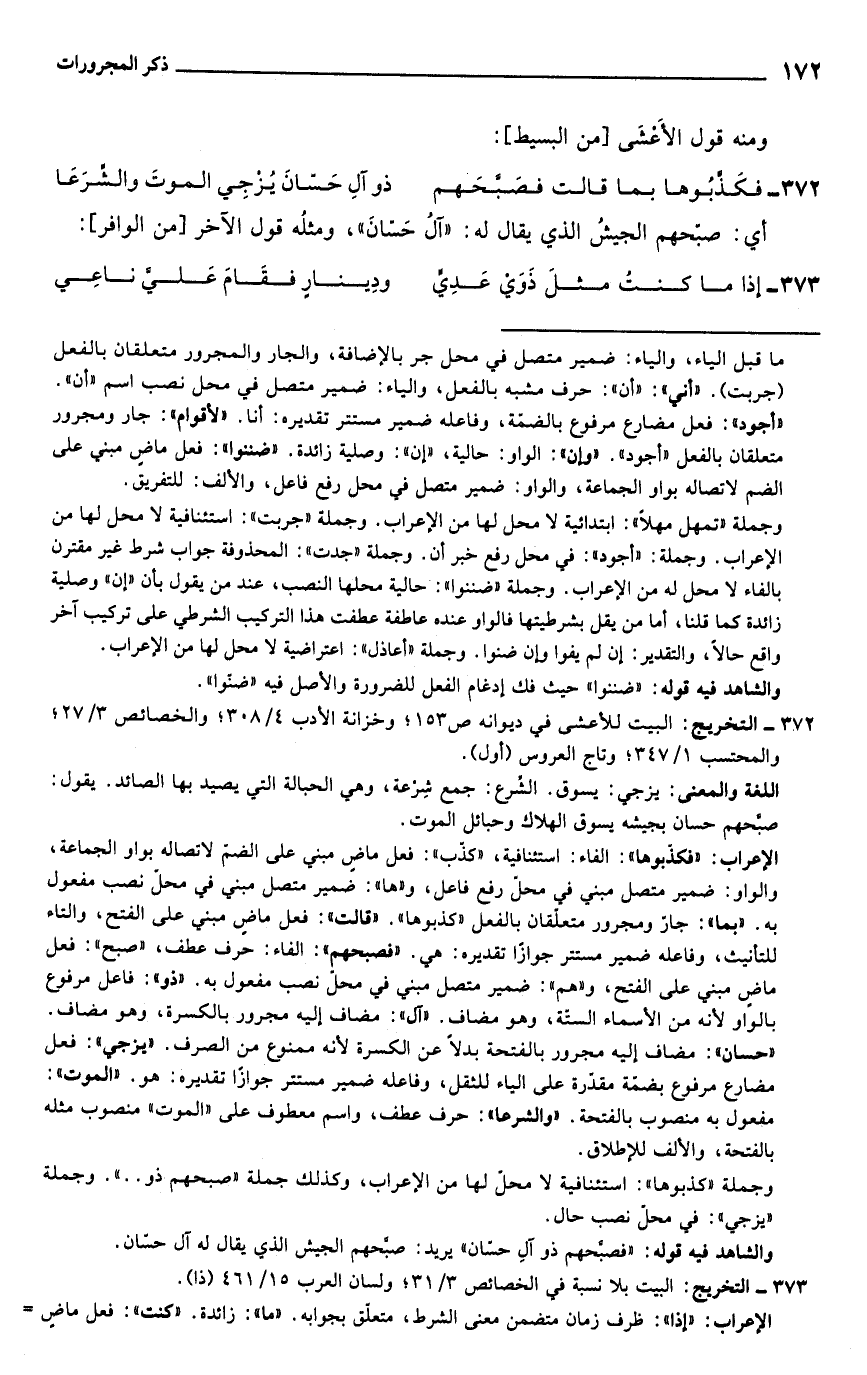 ١٧٢ ذكر المجرورات
ومنه قول الأَعْشَى [من البسيط]:
٣٧٢ـ فـكَـذَّبُـوهـا بـمـا قـالـت فـصَـبَّـحَـهـم ذو آلِ حَسّانَ يُزْجِي الموتَ والشَّرَعَا
أي: صبّحهم الجيشُ الذي يقال له: «آلُ حَسّانَ»، ومثلُه قول الآخر [من الوافر]:
٣٧٣ـ إذا مـا كـنـتُ مـثـلَ ذَوَيْ عَـدِيٍّ ودِيـنـارٍ فـقَـامَ عَـلـيَّ نـاعِـي
ما قبل الياء، والياء: ضمير متصل في محل جر بالإضافة، والجار والمجرور متعلقان بالفعل
(جربت). «أني»: «أن»: حرف مشبه بالفعل، والياء: ضمير متصل في محل نصب اسم «أن».
«أجود»: فعل مضارع مرفوع بالضمّة، وفاعله ضمير مستتر تقديره: أنا. «لأقوام»: جار ومجرور
متعلقان بالفعل «أجود». «وإن»: الواو: حالية، «إن»: وصلية زائدة. «ضننوا»: فعل ماضٍ مبني على
الضم لاتصاله بواو الجماعة، والواو: ضمير متصل في محل رفع فاعل، والألف: للتفريق.
وجملة «تمهل مهلاً»: ابتدائية لا محل لها من الإعراب. وجملة «جربت»: استئنافية لا محل لها من
الإعراب. وجملة: «أجود»: في محل رفع خبر أن. وجملة «جدت»: المحذوفة جواب شرط غير مقترن
بالفاء لا محل له من الإعراب. وجملة «ضننوا»: حالية محلها النصب، عند من يقول بأن «إن» وصلية
زائدة كما قلنا، أما من يقل بشرطيتها فالواو عنده عاطفة عطفت هذا التركيب الشرطي على تركيب آخر
واقع حالاً، والتقدير: إن لم يفوا وإن ضنوا. وجملة «أعاذل»: اعتراضية لا محل لها من الإعراب.
والشاهد فيه قوله: «ضننوا» حيث فك إدغام الفعل للضرورة والأصل فيه «ضنّوا».
٣٧٢ ـ التخريج: البيت للأعشى في ديوانه ص١٥٣؛ وخزانة الأدب ٤/ ٣٠٨؛ والخصائص ٣/ ٢٧؛
والمحتسب ١/ ٣٤٧؛ وتاج العروس (أول).
اللغة والمعنى: يزجي: يسوق. الشَّرع: جمع شِرْعة، وهي الحبالة التي يصيد بها الصائد. يقول:
صبَّحهم حسان بجيشه يسوق الهلاك وحبائل الموت.
الإعراب: «فكذبوها»: الفاء: استئنافية، «كذّب»: فعل ماضٍ مبني على الضمّ لاتصاله بواو الجماعة،
والواو: ضمير متصل مبني في محلّ رفع فاعل، و«ها»: ضمير متصل مبني في محلّ نصب مفعول
به. «بما»: جارّ ومجرور متعلّقان بالفعل «كذبوها». «قالت»: فعل ماضٍ مبني على الفتح، والتاء
للتأنيث، وفاعله ضمير مستتر جوازًا تقديره: هي. «فصبحهم»: الفاء: حرف عطف، «صبح»: فعل
ماضٍ مبني على الفتح، و«هم»: ضمير متصل مبني في محلّ نصب مفعول به. «ذو»: فاعل مرفوع
بالواو لأنه من الأسماء الستّة، وهو مضاف. «آل»: مضاف إليه مجرور بالكسرة، وهو مضاف.
«حسان»: مضاف إليه مجرور بالفتحة بدلاً عن الكسرة لأنه ممنوع من الصرف. «يزجي»: فعل
مضارع مرفوع بضمّة مقدّرة على الياء للثقل، وفاعله ضمير مستتر جوازًا تقديره: هو. «الموت»:
مفعول به منصوب بالفتحة. «والشرعا»: حرف عطف، واسم معطوف على «الموت» منصوب مثله
بالفتحة، والألف للإطلاق.
وجملة «كذبوها»: استئنافية لا محلّ لها من الإعراب، وكذلك جملة «صبحهم ذو..». وجملة
«يزجي»: في محلّ نصب حال.
والشاهد فيه قوله: «فصبَّحهم ذو آلِ حسّان» يريد: صبَّحهم الجيش الذي يقال له آل حسّان.
٣٧٣ ـ التخريج: البيت بلا نسبة في الخصائص ٣/ ٣١؛ ولسان العرب ١٥/ ٤٦١ (ذا).
الإعراب: «إذا»: ظرف زمان متضمن معنى الشرط، متعلّق بجوابه. «ما»: زائدة. «كنت»: فعل ماضٍ =